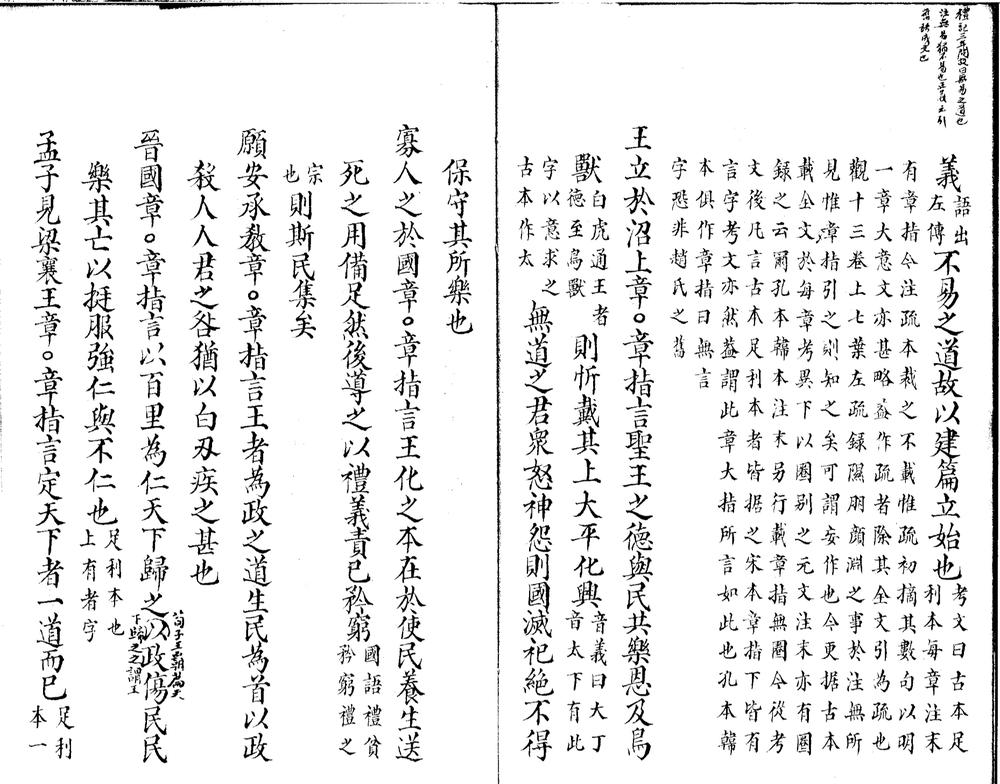 禮記三年問故曰無易之道也
注無易猶不易也
義語出
左傳不易之道故以建篇立始也考文曰古本足
利本每章注末
有章指今注疏本裁之不載惟疏初摘其數句以明
一章大意文亦甚略蓋作疏者除其全文引為疏也
觀十三卷上七葉左疏録隰朋顔淵之事於注無所
見惟章指引之則知之矣可謂妄作也今更据古本
載全文於每章考異下以圈別之元文注末亦有圈
録之云爾孔本韓本注末另行載章指無圈今從考
文後凡言古本足利本者皆据之宋本章指下皆有
言字考文亦然蓋謂此章大指所言如此也孔本韓
本俱作章指曰無言
字恐非趙氏之舊
王立於沼上章○章指言聖王之德與民共樂恩及鳥
獸白虎通王者
德至鳥獸則忻戴其上大平化興音義曰大丁
音太下有此
字以意求之
古本作太無道之君衆怒神怨則國滅祀絶不得
保守其所樂也
寡人之於國章○章指言王化之本在於使民養生送
死之用備足然後導之以禮義責已矜窮國語禮貧
矜窮禮之
宗
也則斯民集矣
願安承教章○章指言王者為政之道生民為首以政
殺人人君之咎猶以白刃疾之甚也
晉國章○章指言以百里為仁天下歸之荀子王霸篇天
下歸之之謂王以政傷民民
樂其亡以挺服強仁與不仁也足利本也
上有者字
孟子見梁襄王章○章指言定天下者一道而已足利
本一